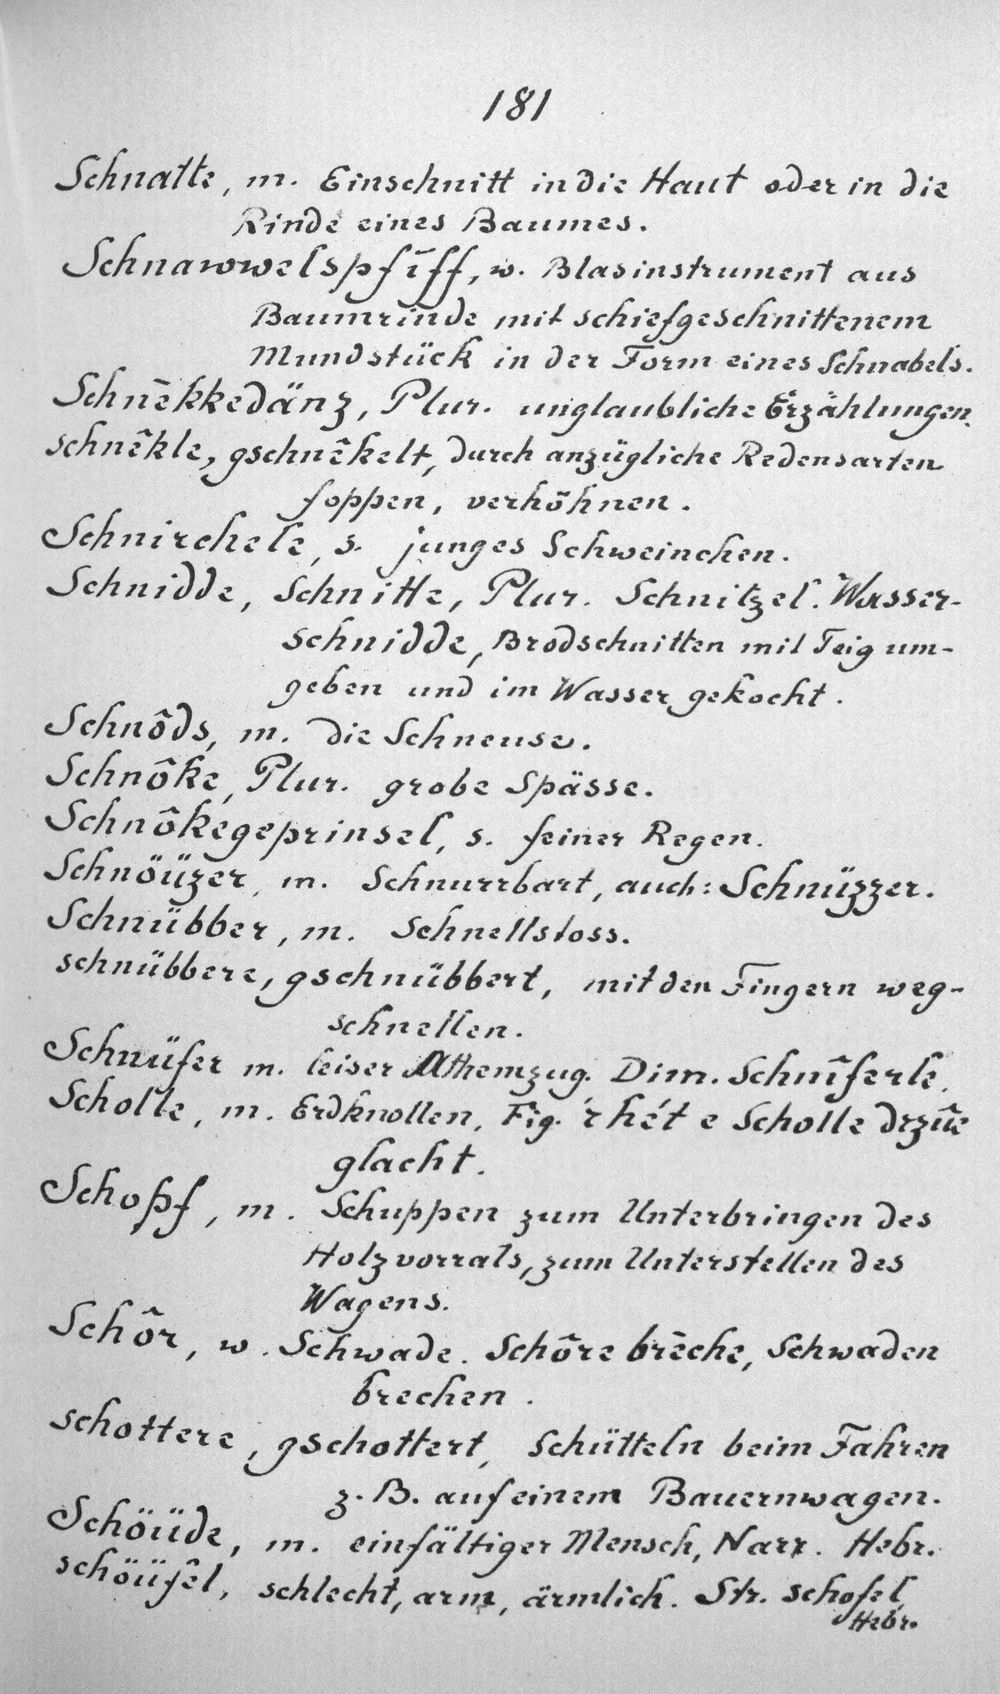 181
Schnatte, m. Einschnitt in die Haut oder in die
Rinde eines Baumes.
Schnawwelspfiff, w. Blasinstrument aus
Baumrinde mit schiefgeschnittenem
Mundstück in der Form eines Schnabels.
Schnêkkedänz, Plur. unglaubliche Erzählungen.
schnêkle, gschnêkelt, durch anzügliche Redensarten
foppen, verhöhnen.
Schnirchele, s. junges Schweinchen.
Schnidde, Schnitte, Plur. Schnitzel. Wasser-
schnidde, Brodschnitten mit Teig um-
geben und im Wasser gekocht.
Schnôds, m. die Schneuse.
Schnôke, Plur. grobe Spässe.
Schnôkegeprinsel, s. feiner Regen.
Schnöüzer, m. Schnurrbart, auch: Schnüzzer.
Schnübber, m. Schnellstoss.
schnübbere, gschnübbert, mit den Fingern weg-
schnellen.
Schnüfer m. leiser Athemzug. Dim. Schnîferle.
Scholle, m. Erdknollen, Fig. 'r hét e Scholle drzûe
glacht.
Schopf, m. Schuppen zum Unterbringen des
Holzvorrats, zum Unterstellen des
Wagens.
Schôr, w. Schwade. Schôre brêche, Schwaden
brechen.
schottere, gschottert, schütteln beim Fahren
z. B. auf einem Bauernwagen.
Schöüde, m. einfältiger Mensch, Narr. Hebr.
schöüfel, schlecht, arm, ärmlich. Str. schofel,
Hebr.